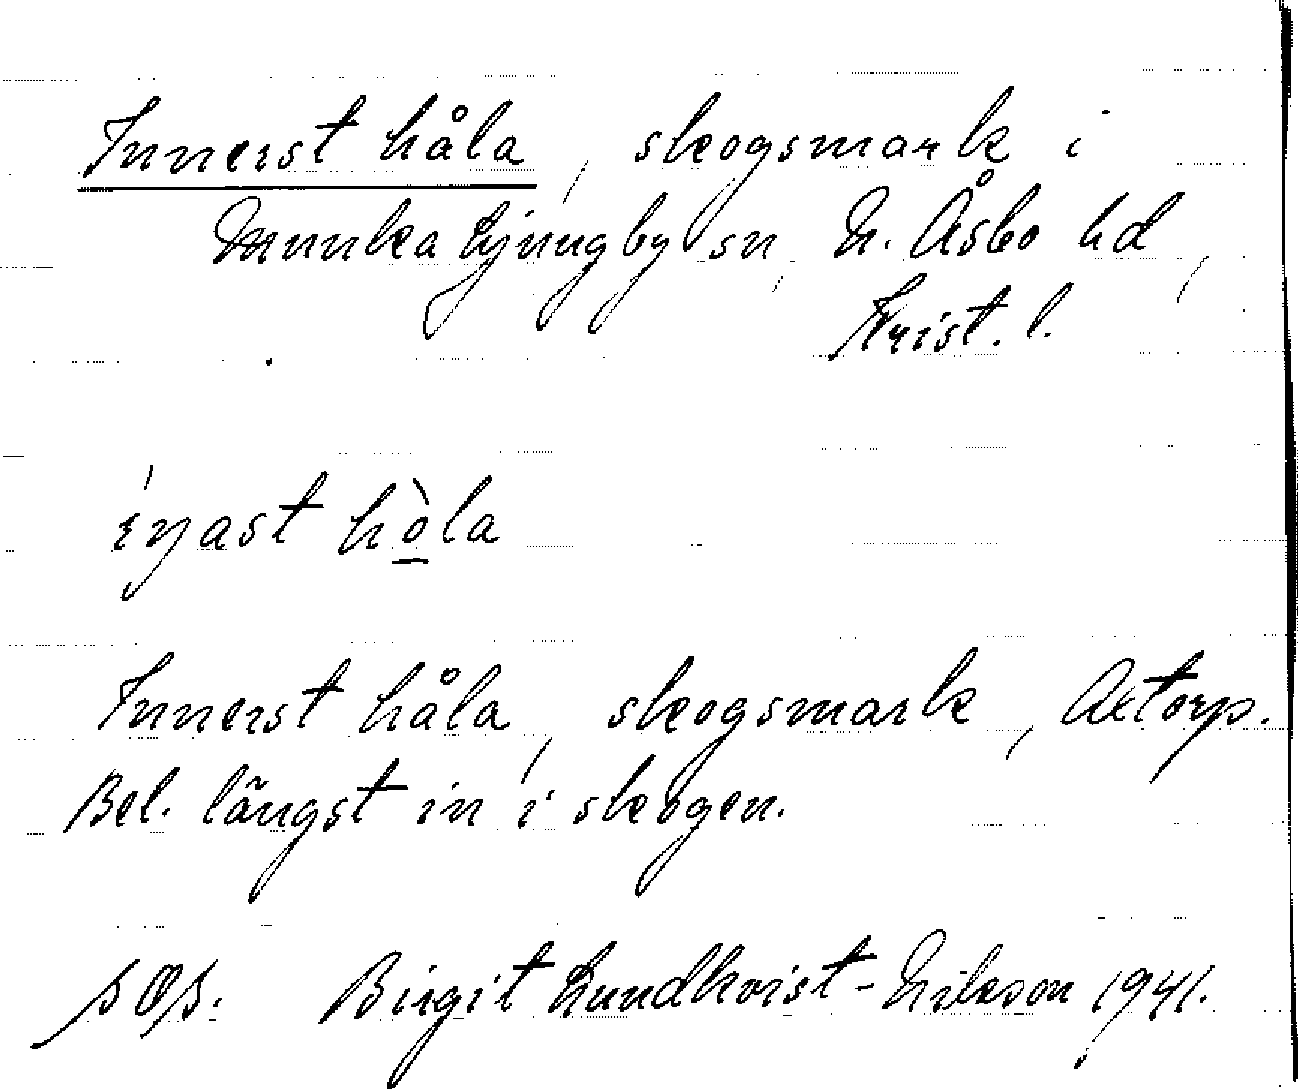 Innerst håla, skogsmark i
Munka Ljungby sn, N. Åsbo hd,
Krist. l.
Innerst håla, skogsmark, Axtorp.
Bel. längst in i skogen.
Birgit Lundkvist-Nilsson 1941.